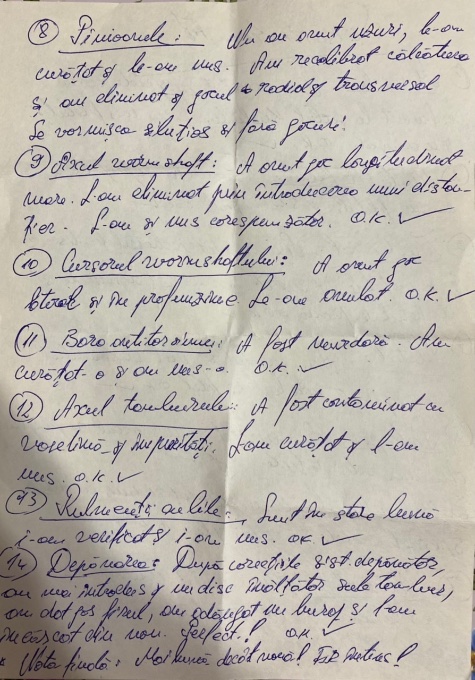 ⑧ Pinioanele: Nu au avut uzuri, le-am
curățat și le-am uns. Am recalibrat călcătura
și am eliminat și jocul radial și transversal
Se vor mișca silențios și fără jocuri!
⑨ Axul wormshaft: A avut joc longitudinal
mare. L-am eliminat prin introducerea unui distan-
țier. L-am și uns corespunzător. O.K. ✓
⑩ Cursorul wormshaftului: A avut joc
lateral și în profunzime. Le-am anulat. O.K. ✓
⑪ Bara antitorsiune: A fost murdară. Am
curățat-o și am uns-o. O.K. ✓
⑫ Axul tamburului: A fost contaminat cu
vaselină și impurități. L-am curățat și l-am
uns. O.K. ✓
⑬ Rulmenții cu bile: Sunt în stare bună
i-am verificat și i-am uns. OK ✓
⑭ Depănarea: După corecțiile sist. depănător,
am mai introdus și un disc înălțător sub tambur,
am dat jos firul, am adăugat și l-am
încărcat din nou. Perfect! O.K. ✓
* Nota finală: Mai bună decât nouă!